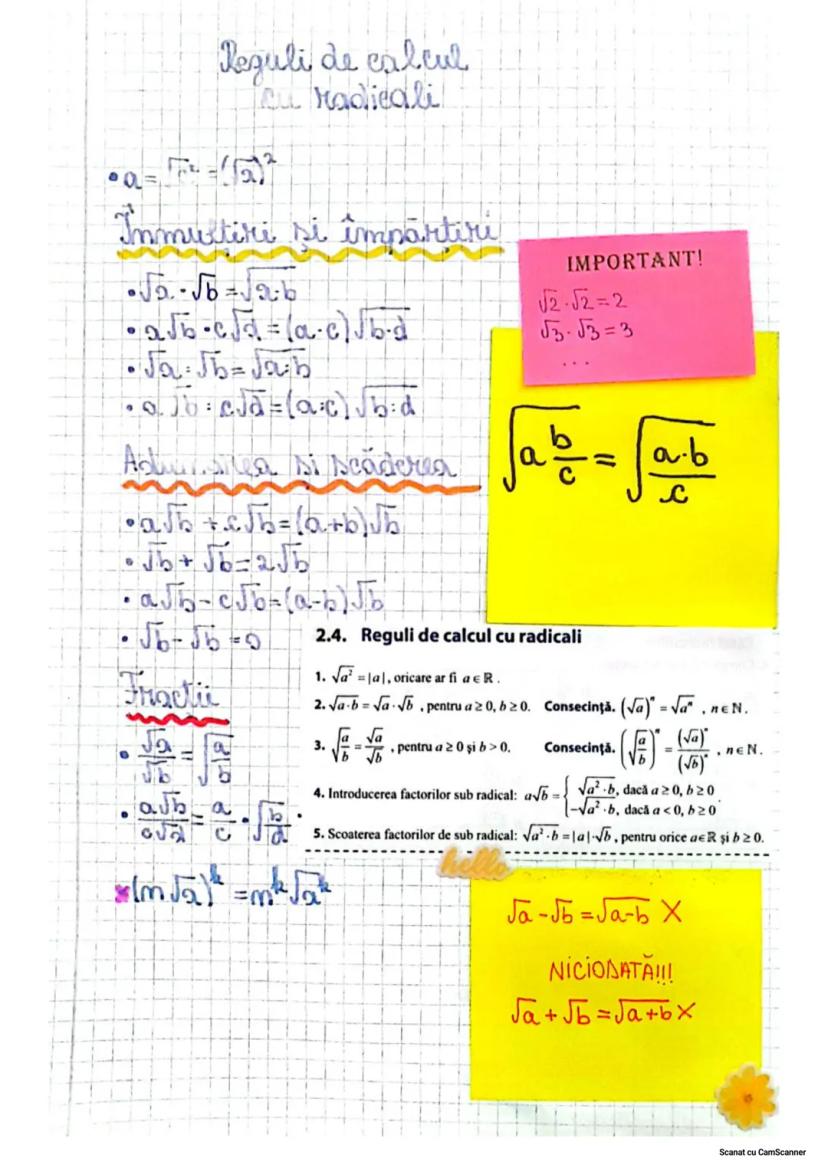 Reguli de calcul
cu radicali
• a = √a² = (√a)²
Înmulțiri și împărțiri
• √a · √b = √a·b
• a√b · c√d = (a·c)√b·d
• √a : √b = √a:b
• a√b : c√d = (a:c)√b:d
Adunarea și scăderea
• a√b + c√b = (a+b)√b
• √b + √b = 2√b
• a√b - c√b = (a-b)√b
• √b - √b = 0
Fracții
• √a/√b = √(a/b)
• a√b/c√d = a/c · √(b/d)
* (m√a)ᵏ = mᵏ√aᵏ
IMPORTANT!
√2 · √2 = 2
√3 · √3 = 3
...
√(a b/c) = √(a·b/c)
2.4. Reguli de calcul cu radicali
1. √a² = |a|, oricare ar fi a ∈ ℝ.
2. √a·b = √a · √b, pentru a ≥ 0, b ≥ 0. Consecință. (√a)ⁿ = √aⁿ, n ∈ ℕ.
3. √(a/b) = √a/√b, pentru a ≥ 0 și b > 0. Consecință. (√(a/b))ⁿ = (√a)ⁿ/(√b)ⁿ, n ∈ ℕ.
4. Introducerea factorilor sub radical: a√b = { √a²·b, dacă a ≥ 0, b ≥ 0
-√a²·b, dacă a < 0, b ≥ 0.
5. Scoaterea factorilor de sub radical: √a²·b = |a|·√b, pentru orice a∈ℝ și b ≥ 0.
hello
√a - √b = √a-b X
NICIODATĂ!!!
√a + √b = √a+b X
Scanat cu CamScanner